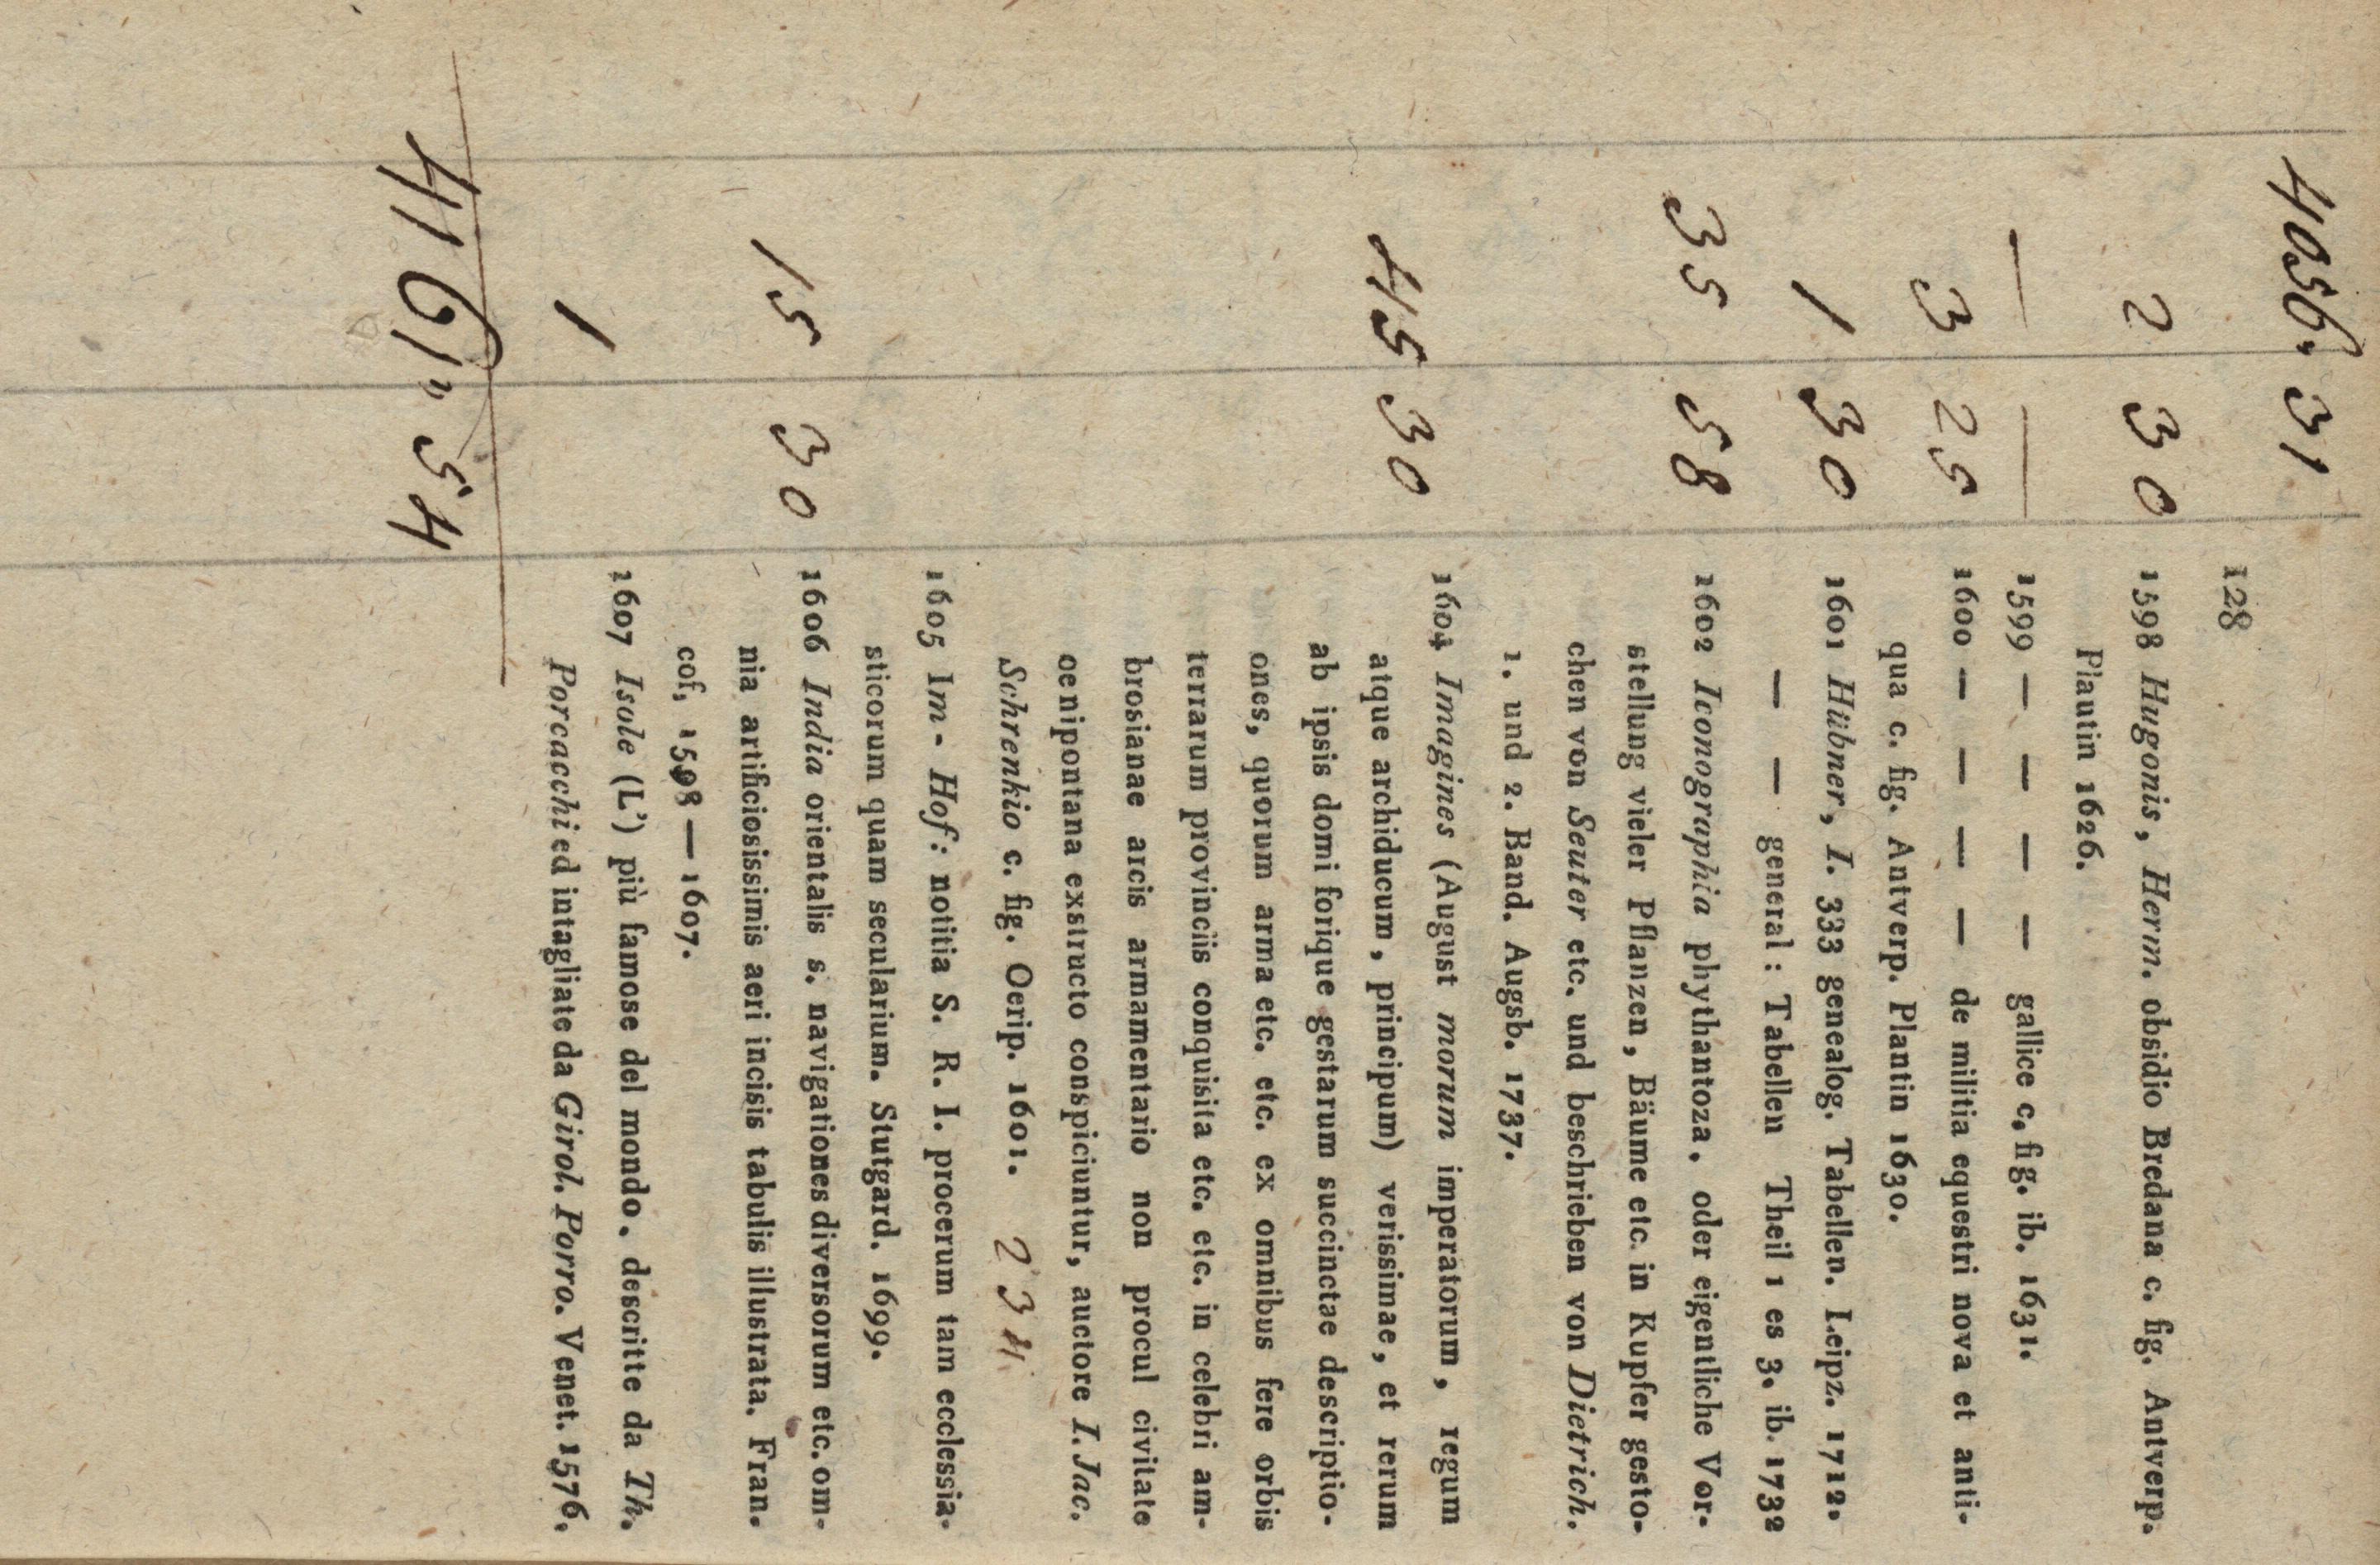 4056. 31
128
2 30 1598 Hugonis, Herm. obsidio Bredana c. fig. Antverp.
Plautin 1626.
— — 1599 — — — — gallice c. fig. ib. 1631.
3 25 1600 — — — — de militia equestri nova et anti-
qua c. fig. Antverp. Plantin 1630.
1 30 1601 Hübner, I. 333 genealog. Tabellen. Leipz. 1712.
— — general: Tabellen Theil 1 es 3. ib. 1732
35 58 1602 Iconographia phythantoza, oder eigentliche Vor-
stellung vieler Pflanzen, Bäume etc. in Kupfer gesto-
chen von Seuter etc. und beschrieben von Dietrich.
1. und 2. Band. Augsb. 1737.
45 30 1604 Imagines (August morum imperatorum, regum
atque archiducum, principum) verissimae, et rerum
ab ipsis domi forique gestarum succinctae descriptio-
ones, quorum arma etc. etc. ex omnibus fere orbis
terrarum provinciis conquisita etc. etc. in celebri am-
brosianae arcis armamentario non procul civitate
oenipontana exstructo conspiciuntur, auctore I. Jac.
Schrenkio c. fig. Oerip. 1601. 234
1605 Im-Hof: notitia S. R. I. procerum tam ecclessia-
sticorum quam secularium. Stutgard. 1699.
15 30 1606 India orientalis s. navigationes diversorum etc. om-
nia artificiosissimis aeri incisis tabulis illustrata. Fran-
cof. 1598—1607.
1607 Isole (L') più famose del mondo, descritte da Th.
1 Porcacchi ed intagliate da Girol. Porro. Venet. 1576.
4161„ 54